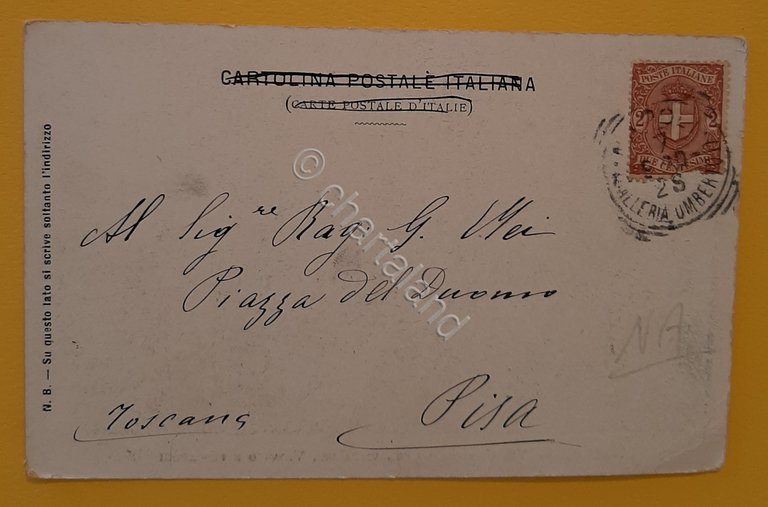 CARTOLINA POSTALE ITALIANA
(CARTE POSTALE D'ITALIE)
POSTE ITALIANE
2 2
DUE CENTESIMI
GALLERIA UMBERTO
N. B. — Su questo lato si scrive soltanto l'indirizzo
Al Sig.re Rag. G. Mei
Piazza del Duomo
Toscana
Pisa
NA
© chartaland